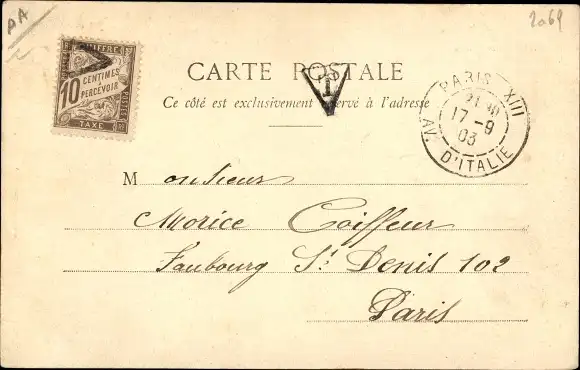 PA
2069
CHIFFRE
10 CENTIMES
À
PERCEVOIR
TAXE
CARTE POSTALE
T
Ce côté est exclusivement réservé à l'adresse
PARIS XIII
17-9
03
AV. D'ITALIE
Monsieur
Morice Coiffeur
Faubourg St Denis 102
Paris